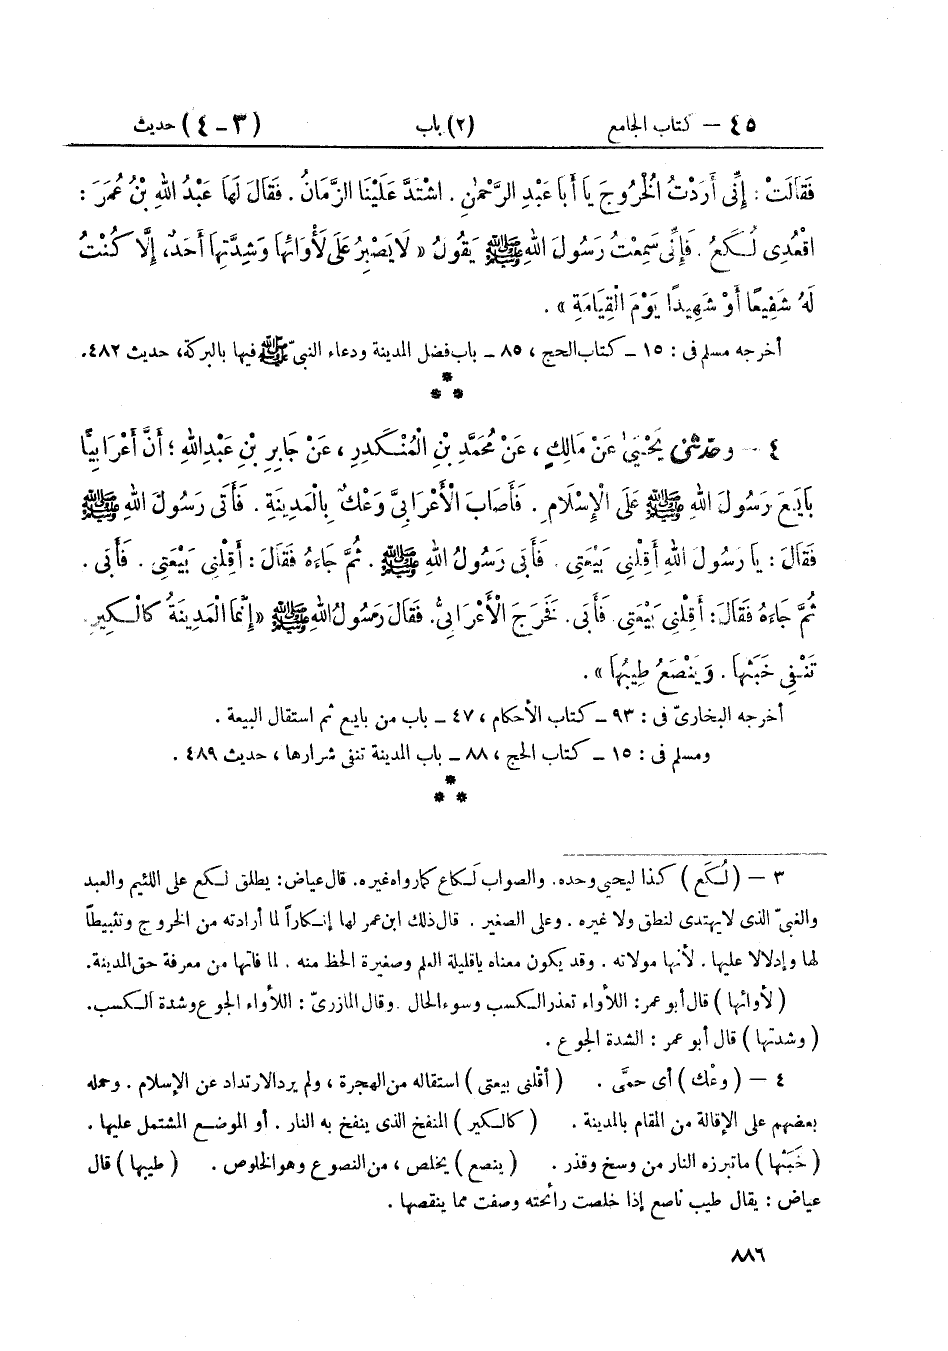 ٤٥ – كتاب الجامع (٢) باب (٣-٤) حديث
فَقَالَتْ : إِنِّى أَرَدْتُ الْخُرُوجَ يَا أَبَا عَبْدِ الرَّحْمٰنِ . اشْتَدَّ عَلَيْنَا الزَّمَانُ . فَقَالَ لَهَا عَبْدُ اللهِ بْنُ عُمَرَ :
اقْعُدِى لُكَعُ . فَإِنِّى سَمِعْتُ رَسُولَ اللهِ ﷺ يَقُولُ « لَا يَصْبِرُ عَلَى لَأْوَائِهَا وَشِدَّتِهَا أَحَدٌ ، إِلَّا كُنْتُ
لَهُ شَفِيعًا أَوْ شَهِيدًا يَوْمَ الْقِيَامَةِ » .
أخرجه مسلم فى : ١٥ – كتاب الحج ، ٨٥ – باب فضل المدينة ودعاء النبىّ ﷺ فيها بالبركة، حديث ٤٨٢.
*
* *
٤ – وحدّثنى يَحْيَىٰ عَنْ مَالِكٍ ، عَنْ مُحَمَّدِ بْنِ الْمُنْكَدِرِ ، عَنْ جَابِرِ بْنِ عَبْدِاللهِ ؛ أَنَّ أَعْرَابِيًّا
بَايَعَ رَسُولَ اللهِ ﷺ عَلَى الْإِسْلَامِ . فَأَصَابَ الْأَعْرَابِىَّ وَعْكٌ بِالْمَدِينَةِ . فَأَتَى رَسُولَ اللهِ ﷺ
فَقَالَ : يَا رَسُولَ اللهِ أَقِلْنِى بَيْعَتِى . فَأَبَى رَسُولُ اللهِ ﷺ . ثُمَّ جَاءَهُ فَقَالَ : أَقِلْنِى بَيْعَتِى . فَأَبَى .
ثُمَّ جَاءَهُ فَقَالَ: أَقِلْنِى بَيْعَتِى. فَأَبَى. فَخَرَجَ الْأَعْرَابِىُّ. فَقَالَ رَسُولُ اللهِ ﷺ «إِنَّمَا الْمَدِينَةُ كَالْكِيرِ.
تَنْفِى خَبَثَهَا . وَيَنْصَعُ طِيبُهَا » .
أخرجه البخارىّ فى : ٩٣ – كتاب الأحكام ، ٤٧ – باب من بايع ثم استقال البيعة .
ومسلم فى : ١٥ – كتاب الحج ، ٨٨ – باب المدينة تنفى شرارها ، حديث ٤٨٩ .
*
* *
٣ – (لُكَع) كذا ليحيى وحده. والصواب لَكاع كما رواه غيره. قال عياض: يطلق لكع على اللئيم والعبد
والغبىّ الذى لا يهتدى لنطق ولا غيره . وعلى الصغير . قال ذلك ابن عمر لها إنكاراً لما أرادته من الخروج وتثبيطاً
لها وإدلالا عليها . لأنها مولاته . وقد يكون معناه يا قليلة العلم وصغيرة الحظ منه . لما فاتها من معرفة حق المدينة.
(لأوائها) قال أبو عمر: اللأواء تعذر الكسب وسوء الحال . وقال المازرىّ : اللأواء الجوع وشدة الكسب.
(وشدتها) قال أبو عمر : الشدة الجوع .
٤ – (وعْك) أى حمَّى . (أقلنى بيعتى) استقاله من الهجرة ، ولم يرد الارتداد عن الإسلام . وحمله
بعضهم على الإقالة من المقام بالمدينة . (كالكير) المنفخ الذى ينفخ به النار . أو الموضع المشتمل عليها .
(خَبَثها) ما تبرزه النار من وسخ وقذر . (ينصع) يخلص ، من النصوع وهو الخلوص . (طيبها) قال
عياض : يقال طيب ناصع إذا خلصت رائحته وصفت مما ينقصها .
٨٨٦